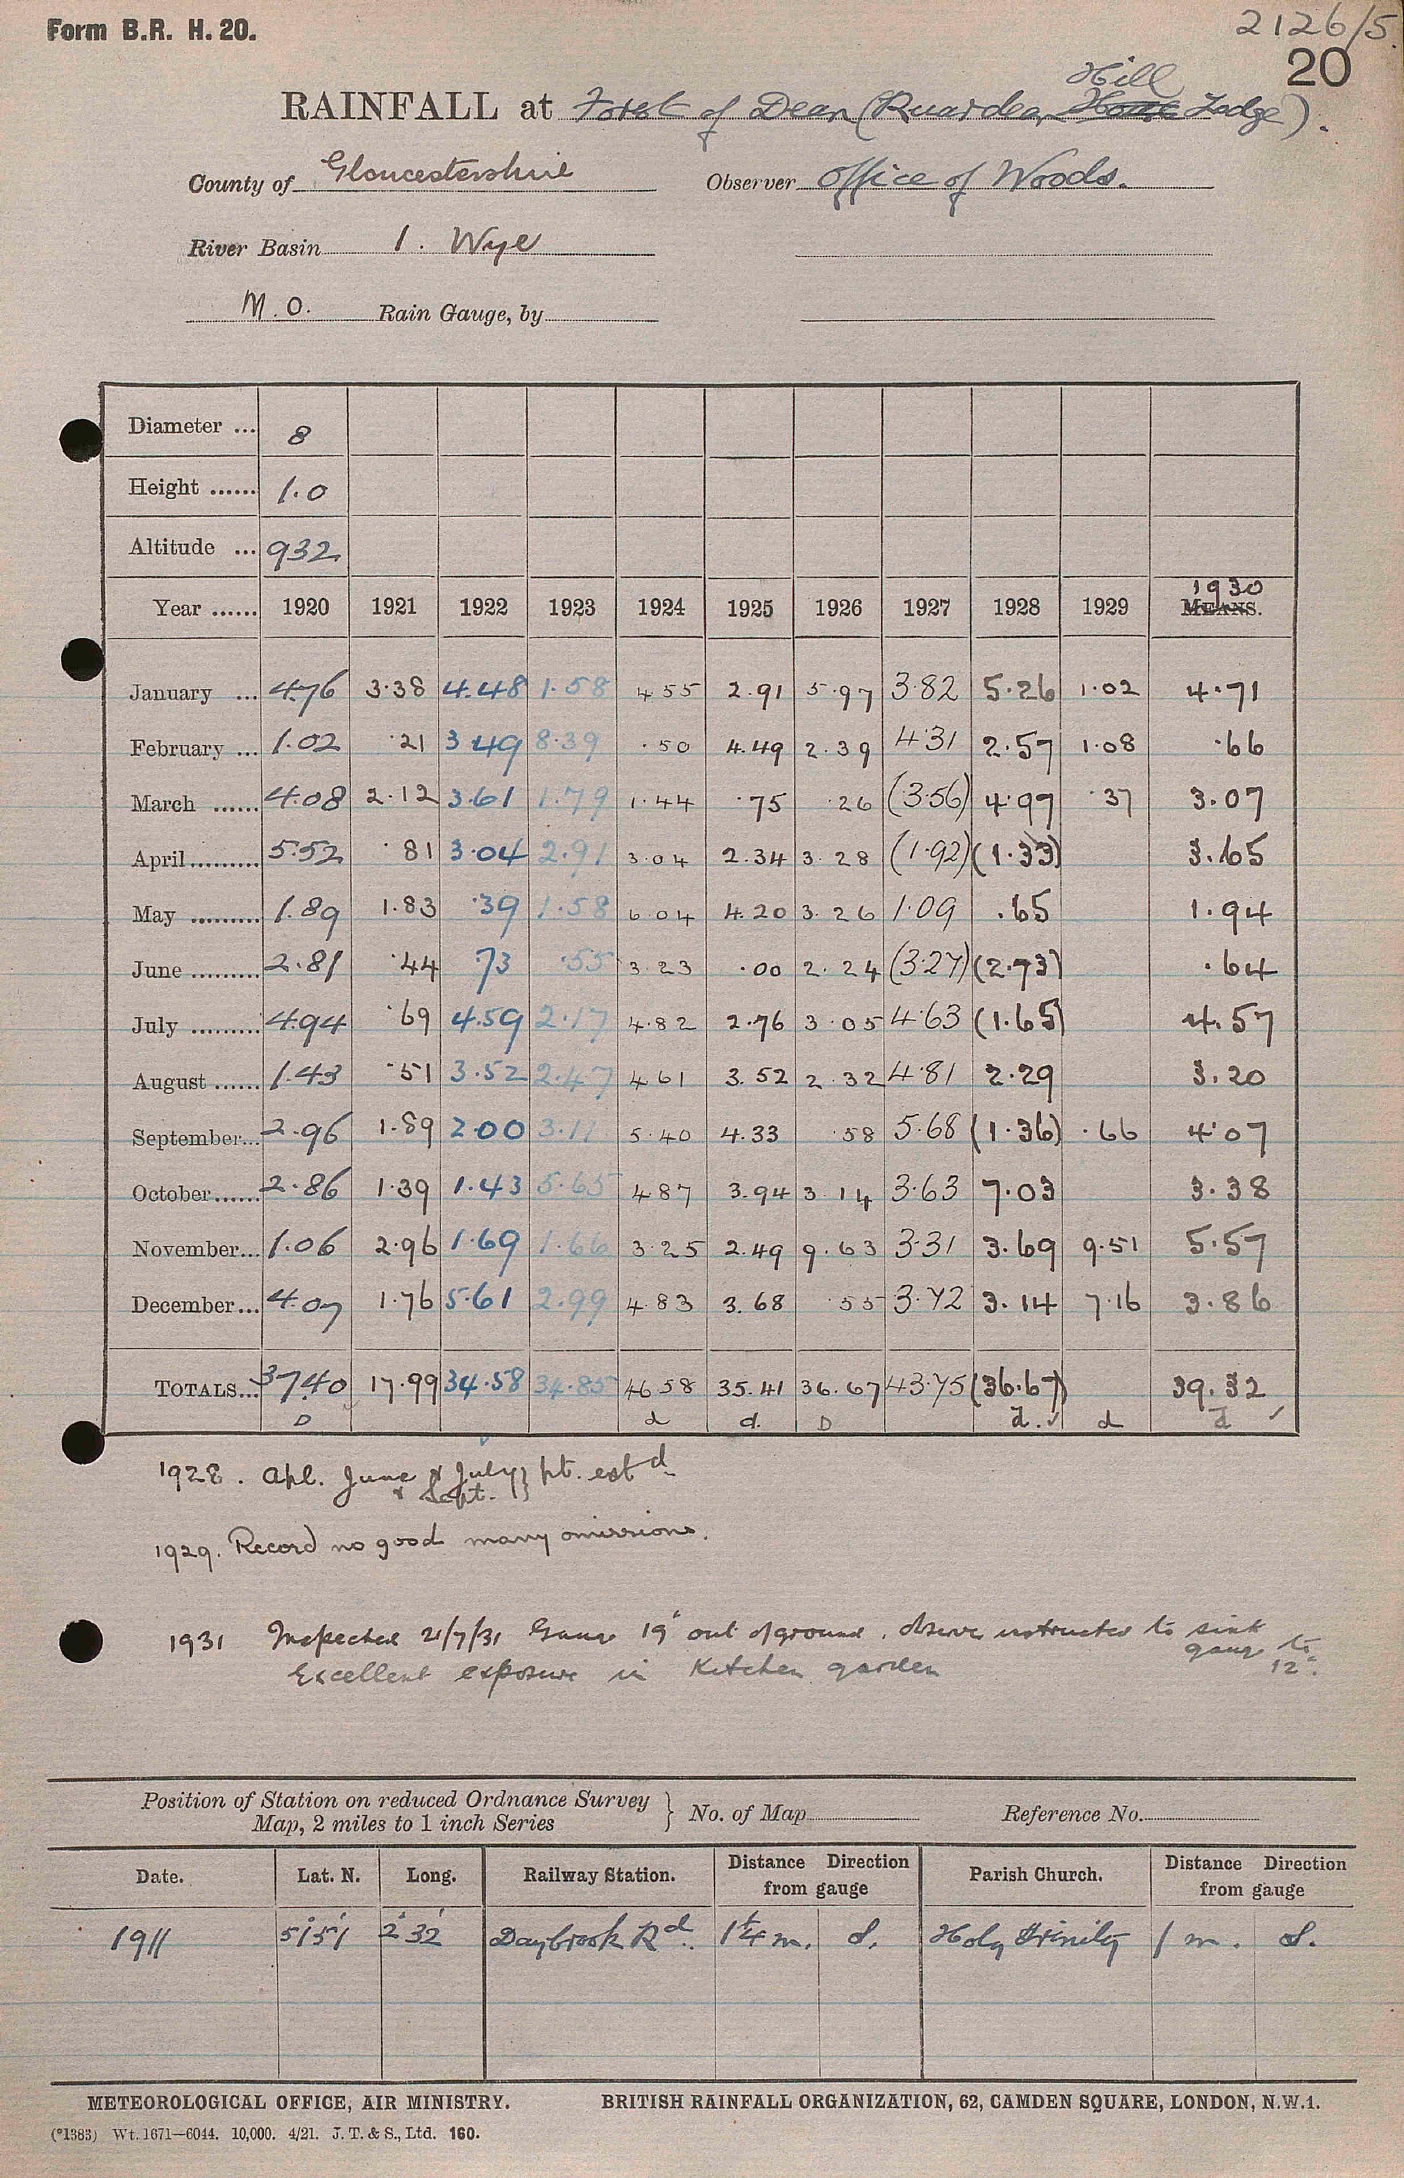 Form B.R. H. 20.
2126/5.
20
Hill
RAINFALL at Forest of Dean (Ruardean House Lodge).
County of Gloucestershire Observer Office of Woods.
River Basin 1. Wye
M.O. Rain Gauge, by
Diameter ... 8
Height ...... 1.0
Altitude ... 932
1930
Year ...... 1920 1921 1922 1923 1924 1925 1926 1927 1928 1929 MEANS.
January ... 4.76 3.38 4.48 1.58 4.55 2.91 5.97 3.82 5.26 1.02 4.71
February ... 1.02 .21 3.49 8.39 .50 4.49 2.39 4.31 2.57 1.08 .66
March ...... 4.08 2.12 3.61 1.79 1.44 .75 .26 (3.56) 4.97 .37 3.07
April ......... 5.52 .81 3.04 2.91 3.04 2.34 3.28 (1.92) (1.33) 3.65
May ......... 1.89 1.83 .39 1.58 6.04 4.20 3.26 1.09 .65 1.94
June ......... 2.81 .44 .73 .55 3.23 .00 2.24 (3.27) (2.73) .64
July ......... 4.94 .69 4.59 2.17 4.82 2.76 3.05 4.63 (1.65) 4.57
August ...... 1.43 .51 3.52 2.47 4.61 3.52 2.32 4.81 2.29 3.20
September... 2.96 1.89 2.00 3.11 5.40 4.33 .58 5.68 (1.36) .66 4.07
October...... 2.86 1.39 1.43 5.65 4.87 3.94 3.14 3.63 7.03 3.38
November... 1.06 2.96 1.69 1.66 3.25 2.49 9.63 3.31 3.69 9.51 5.57
December... 4.07 1.76 5.61 2.99 4.83 3.68 .55 3.72 3.14 7.16 3.86
TOTALS... 37.40 17.99 34.58 34.85 46.58 35.41 36.67 43.75 (36.67) 39.32
D d d. D d. ✓ d d ✓
1928. Apl. June & July } pt. estd
& Sept.
1929. Record no good many omissions.
1931 Inspected 21/7/31 Gauge 19" out of ground. Observer instructed to sink
gauge to
12".
Excellent exposure in kitchen garden
Position of Station on reduced Ordnance Survey
Map, 2 miles to 1 inch Series } No. of Map Reference No.
Date. Lat. N. Long. Railway Station. Distance Direction from gauge Parish Church. Distance Direction from gauge
1911 51°51' 2°32' Daybrook Rd. 1¼ m. S. Holy Trinity 1 m. S.
METEOROLOGICAL OFFICE, AIR MINISTRY. BRITISH RAINFALL ORGANIZATION, 62, CAMDEN SQUARE, LONDON, N.W.1.
(*1383) Wt. 1671—6044. 10,000. 4/21. J. T. & S., Ltd. 160.